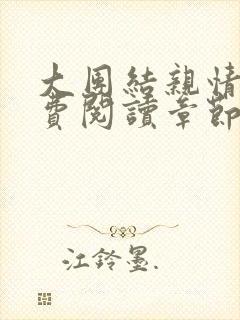 大團結親情
費閱讀章節
江鈴墨.